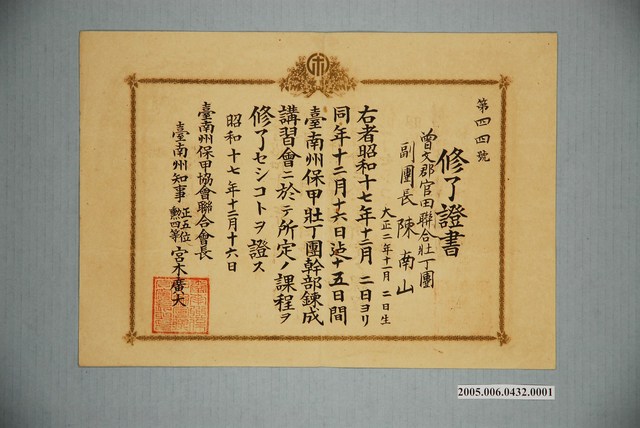 第四四號
修了證書
曾文郡官田聯合壯丁團
副團長 陳南山
大正二年十一月二日生
右者昭和十七年十二月二日ヨリ
同年十二月十六日迠十五日間
臺南州保甲壯丁團幹部鍊成
講習會ニ於テ所定ノ課程ヲ
修了セシコトヲ證ス
昭和十七年十二月十六日
臺南州保甲協會聯合會長
臺南州知事 正五位勲四等 宮木廣大
2005.006.0432.0001